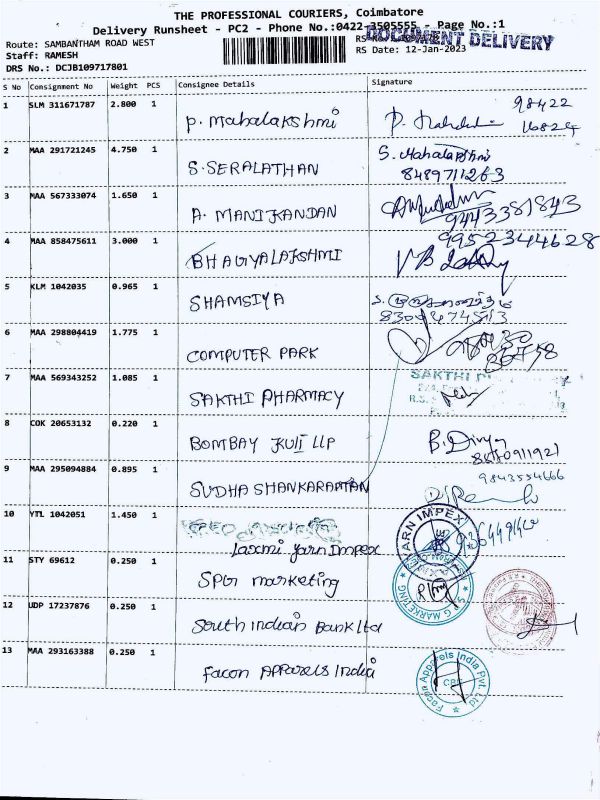 THE PROFESSIONAL COURIERS, Coimbatore
Delivery Runsheet - PC2 - Phone No.:0422-3505555 - Page No.:1
DOCUMENT DELIVERY
Route: SAMBANTHAM ROAD WEST
Staff: RAMESH RS Date: 12-Jan-2023
DRS No.: DCJB109717801
S No Consignment No Weight PCS Consignee Details Signature
1 SLM 311671787 2.800 1 P. Mahalakshmi 98422
16824
2 MAA 291721245 4.750 1 S. SERALATHAN S. Mahalakshmi
8489711263
3 MAA 567333074 1.650 1 A. MANIKANDAN 9443381843
4 MAA 858475611 3.000 1 BHAGYALAKSHMI 9952344628
5 KLM 1042035 0.965 1 SHAMSIYA
6 MAA 298804419 1.775 1 COMPUTER PARK
7 MAA 569343252 1.085 1 SAKTHI PHARMACY SAKTHI
R.S.
8 COK 20653132 0.220 1 BOMBAY KULI LLP B. Divya
9 MAA 295094884 0.895 1 SUDHA SHANKARAPPAN 9843554666
10 YTL 1042051 1.450 1 Laxmi Yarn Impex YARN IMPEX
11 STY 69612 0.250 1 SPG Marketing S P G MARKETING
12 UDP 17237876 0.250 1 South Indian Bank Ltd
13 MAA 293163388 0.250 1 Facon APParels India Facon Apparels India Pvt. Ltd
CBE